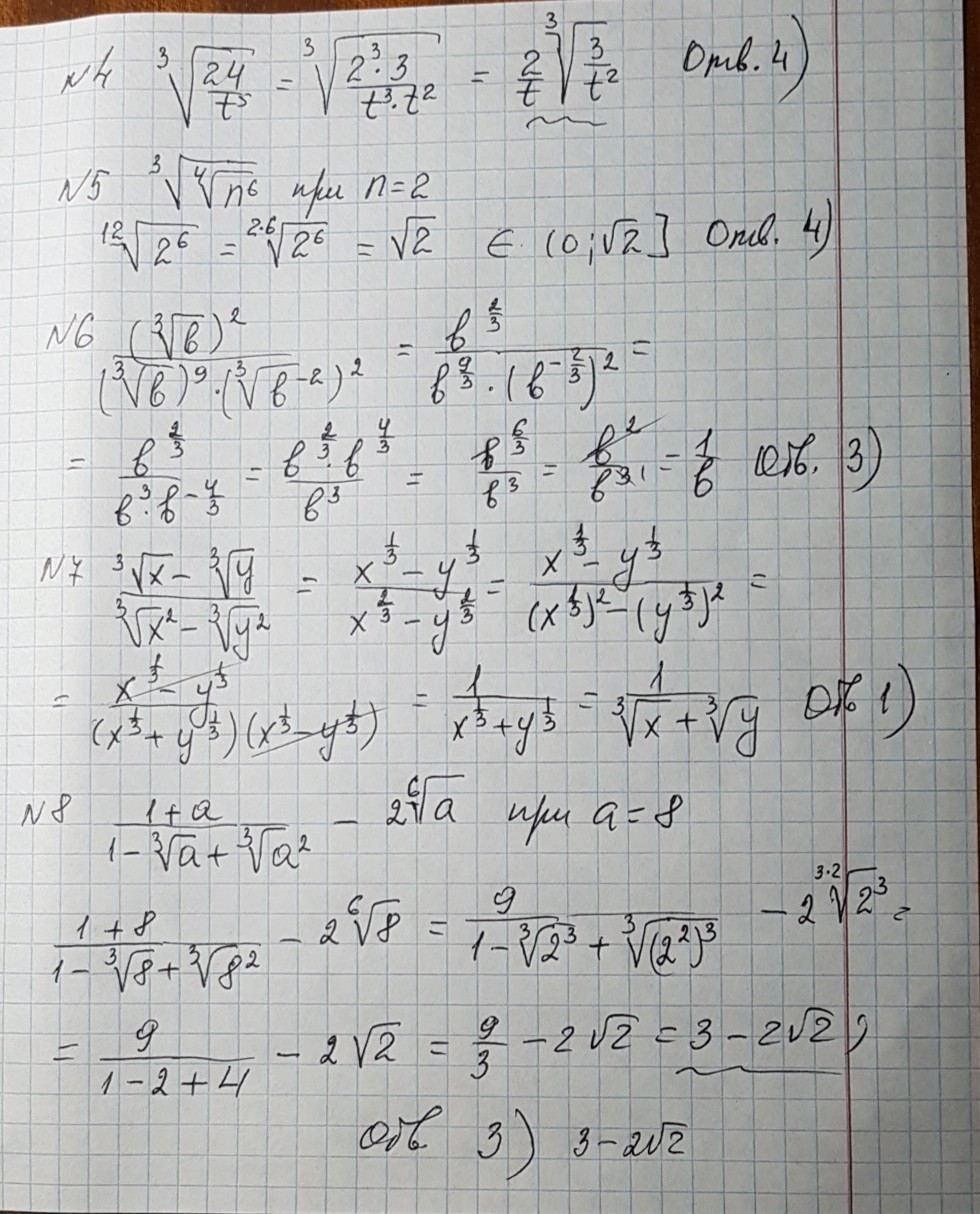 N4 ∛(24/t⁵) = ∛(2³·3/t³·t²) = 2/t ∛(3/t²) Отв. 4)
N5 ∛(∜n⁶) при n=2
¹²√2⁶ = ²·⁶√2⁶ = √2 ∈ (0;√2] Отв. 4)
N6 (∛b)²/((∛b)⁹·(∛b⁻²)²) = b^(2/3)/(b^(9/3)·(b^(-2/3))²) =
= b^(2/3)/(b³·b^(-4/3)) = b^(2/3)·b^(4/3)/b³ = b^(6/3)/b³ = b²/b³ ¹ = 1/b Отв. 3)
N7 (∛x - ∛y)/(∛x² - ∛y²) = (x^(1/3) - y^(1/3))/(x^(2/3) - y^(2/3)) = (x^(1/3) - y^(1/3))/((x^(1/3))² - (y^(1/3))²) =
= (x^(1/3) - y^(1/3))/((x^(1/3) + y^(1/3))(x^(1/3) - y^(1/3))) = 1/(x^(1/3) + y^(1/3)) = 1/(∛x + ∛y) Отв 1)
N8 (1+a)/(1-∛a+∛a²) - 2⁶√a при a=8
(1+8)/(1-∛8+∛8²) - 2⁶√8 = 9/(1-∛2³+∛(2²)³) - 2³·²√2³ =
= 9/(1-2+4) - 2√2 = 9/3 - 2√2 = 3-2√2;
Отв 3) 3-2√2